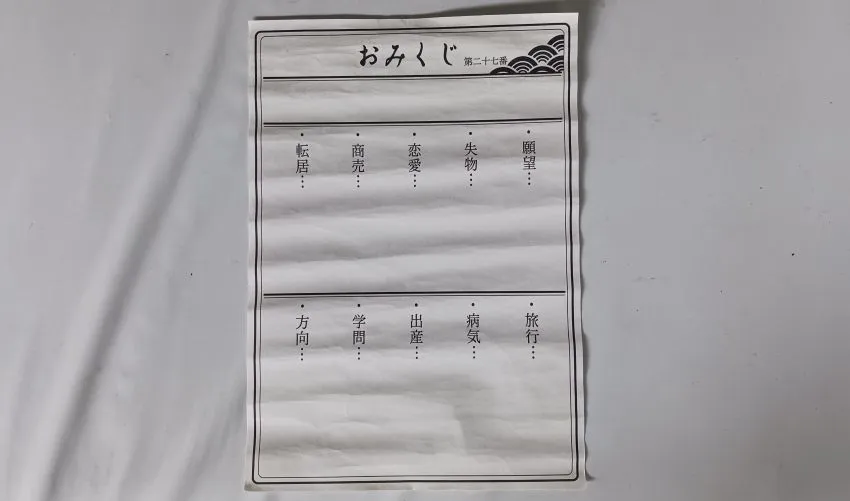 おみくじ 第二十七番
・願望…
・失物…
・恋愛…
・商売…
・転居…
・旅行…
・病気…
・出産…
・学問…
・方向…